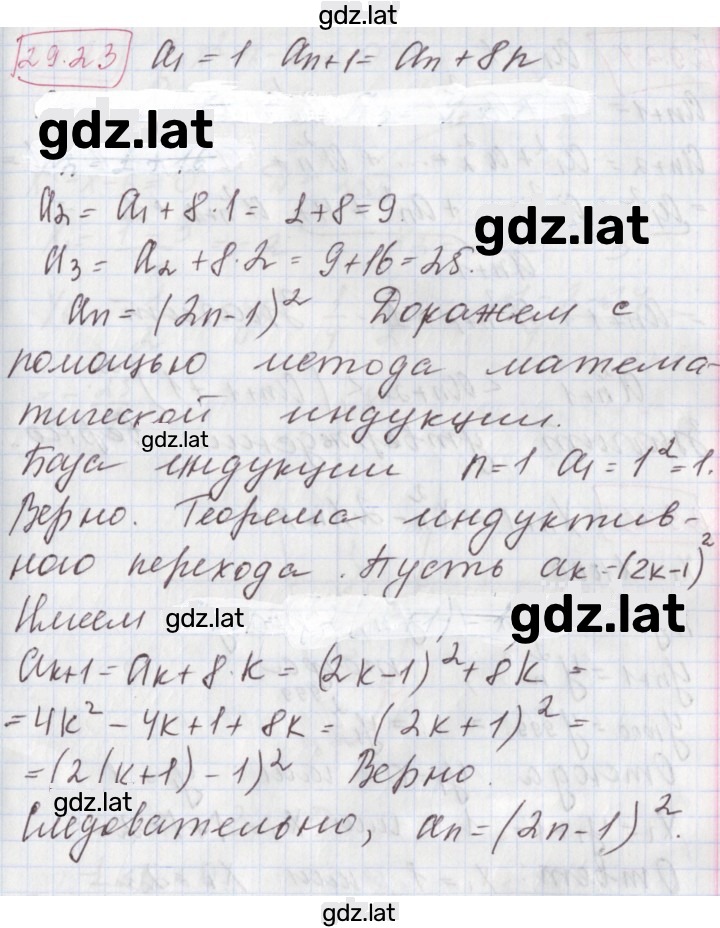 gdz.lat
29.23 a₁ = 1 aₙ₊₁ = aₙ + 8n
gdz.lat
a₂ = a₁ + 8·1 = 1+8 = 9.
gdz.lat
a₃ = a₂ + 8·2 = 9+16 = 25.
aₙ = (2n-1)² Докажем с
помощью метода матема-
тической индукции.
gdz.lat
База индукции n=1 a₁ = 1² = 1.
Верно. Теорема индуктив-
ного перехода. Пусть aₖ = (2k-1)²
Имеем gdz.lat gdz.lat
aₖ₊₁ = aₖ + 8·k = (2k-1)² + 8k =
= 4k² - 4k + 1 + 8k = (2k+1)² =
= (2(k+1) - 1)² Верно.
gdz.lat
Следовательно, aₙ = (2n-1)².
gdz.lat